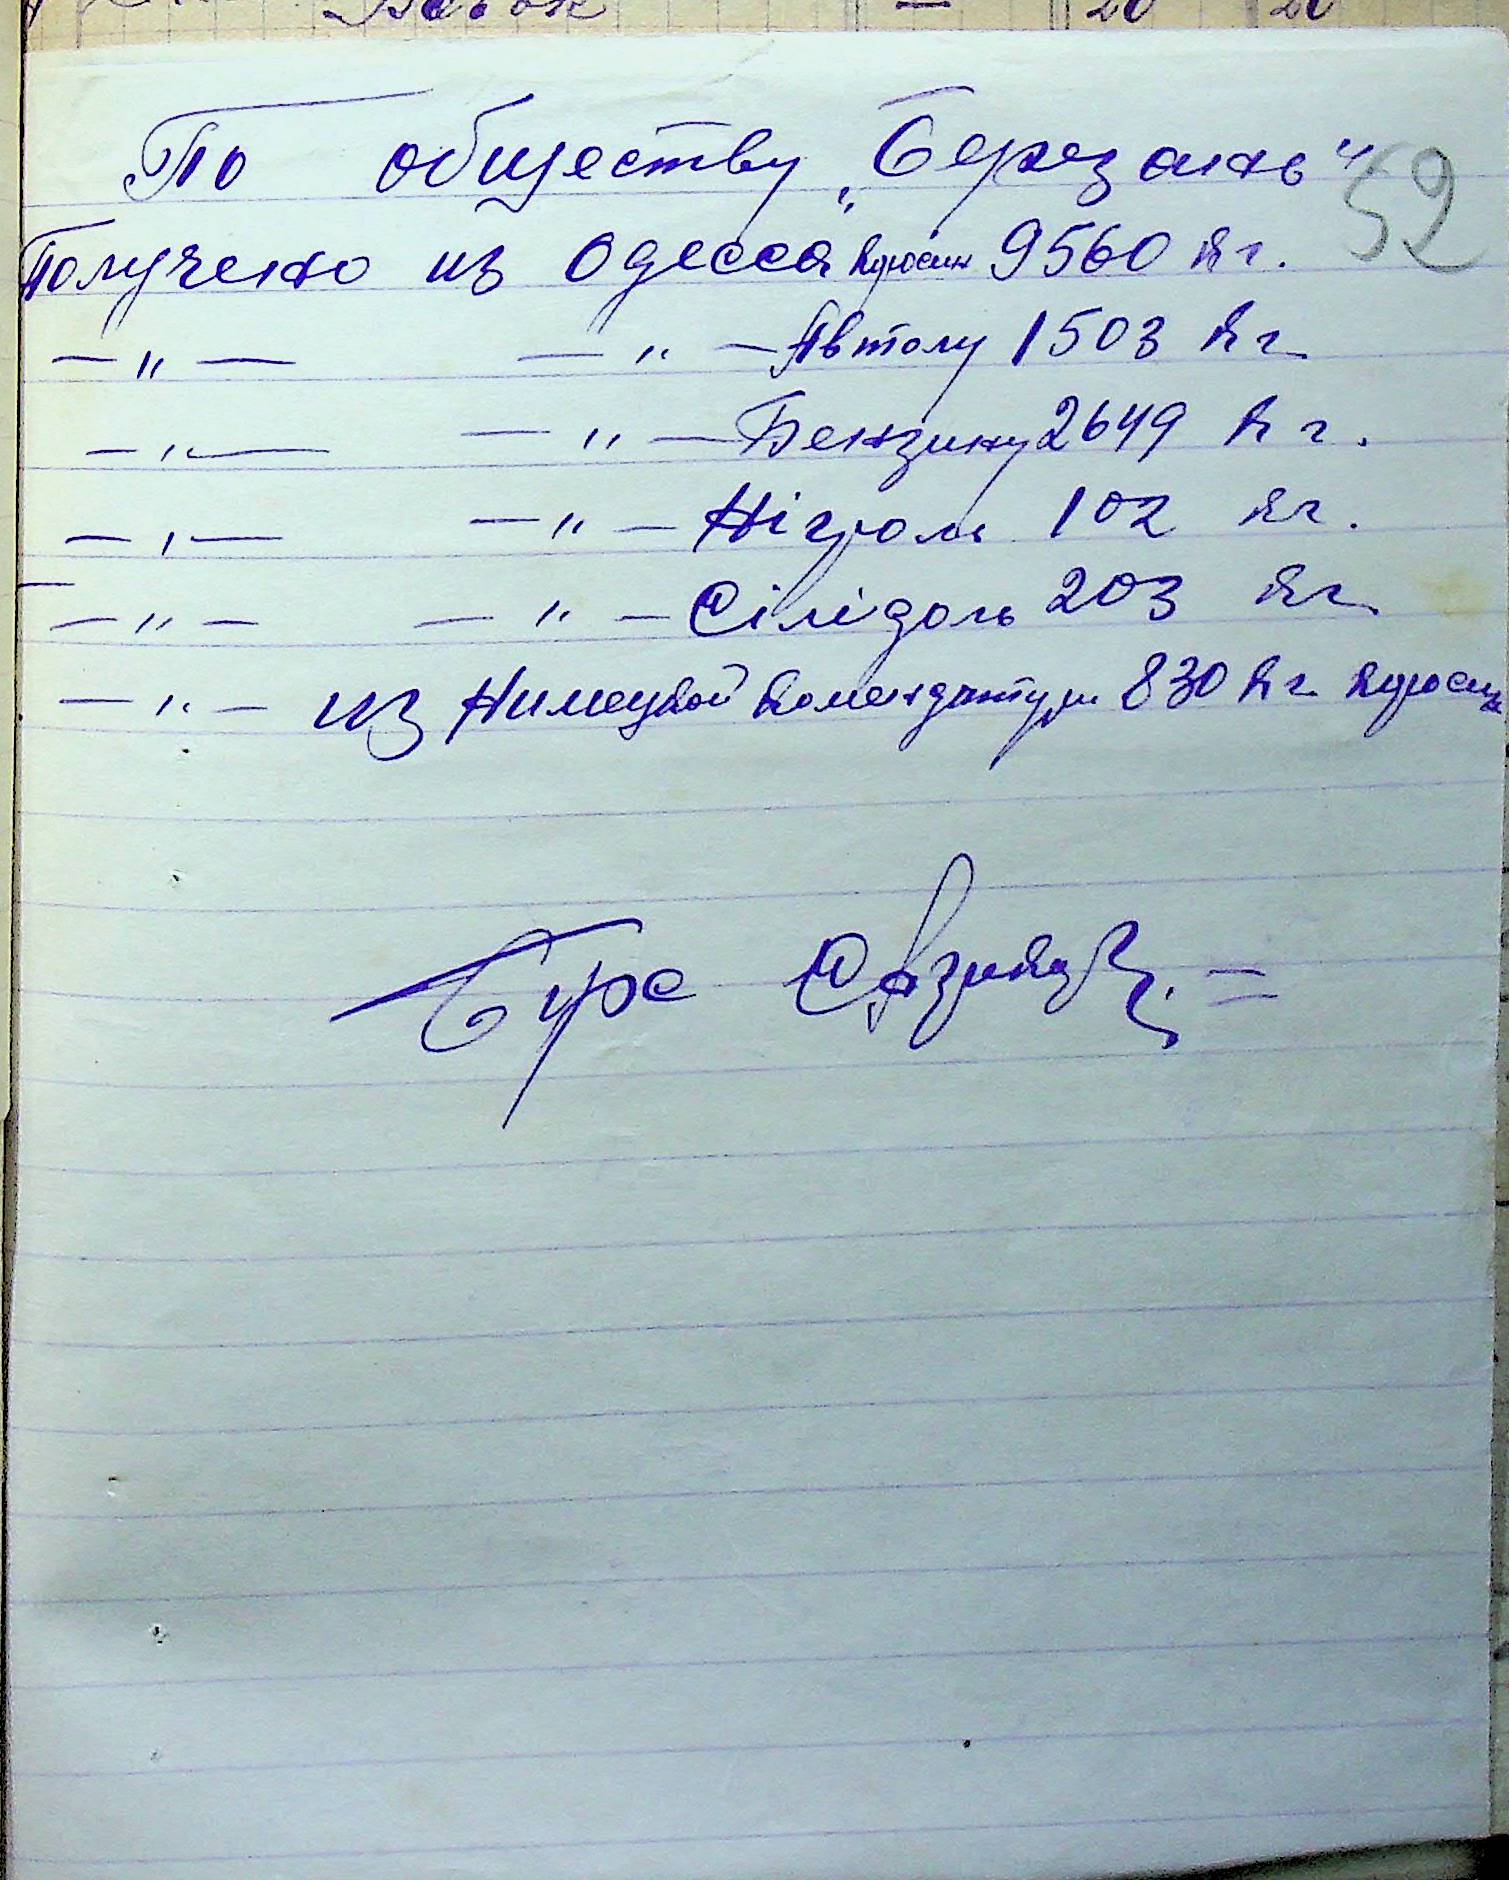 20 20
По обществу „Березань"
52
Получено из Одесса Керосин 9560 кг.
— „ — — „ — Автолу 1503 кг
— „ — — „ — Бензину 2649 кг.
— „ — — „ — Нігроль 102 кг.
— „ — — „ — Сілідоль 203 кг
— „ — из Нимецкой Комендатури 830 кг Керосин